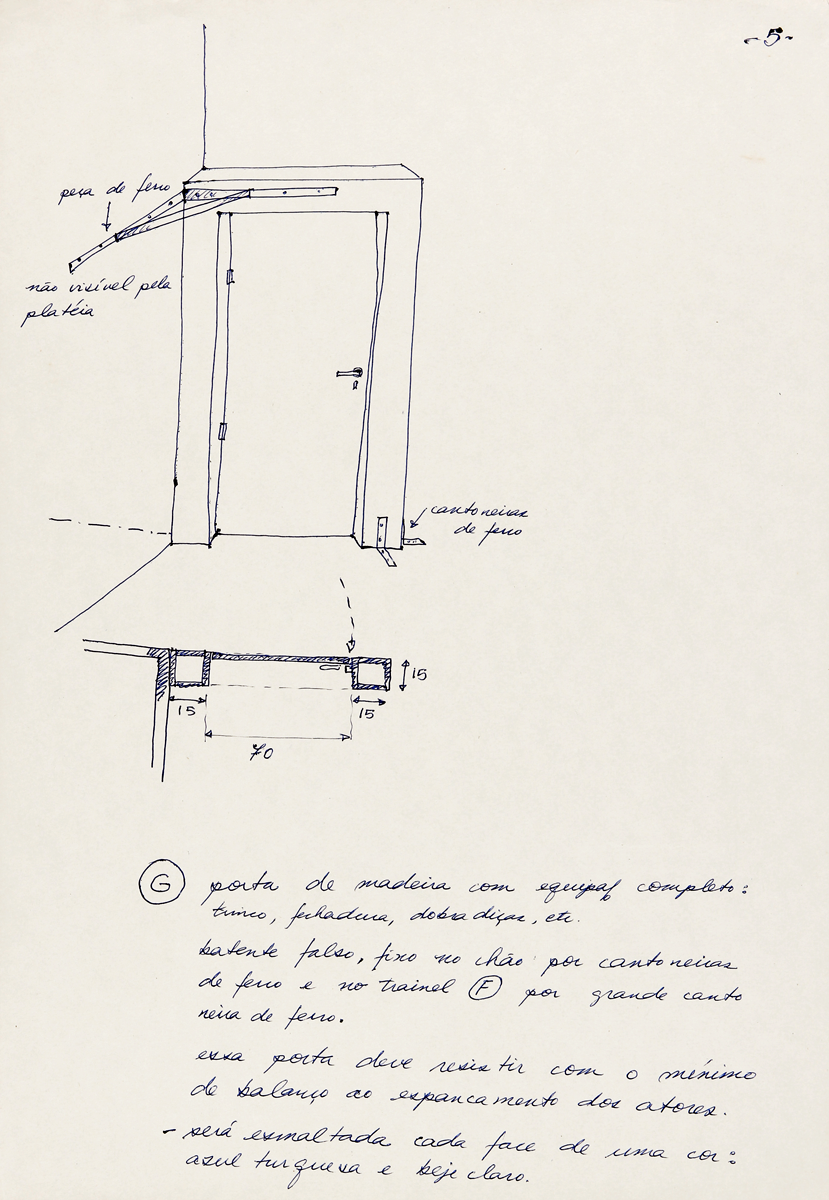 - 5 -
peça de ferro
não visível pela
platéia
cantoneiras
de ferro
15
15
15
70
G porta de madeira com completo:
trinco, fechadura, dobradiças, etc.
batente falso, fixo no chão por cantoneiras
de ferro e no trainel F por grande canto
neira de ferro.
essa porta deve resistir com o mínimo
de balanço ao espancamento dos atores.
- será esmaltada cada face de uma cor:
azul turquesa e beje claro.